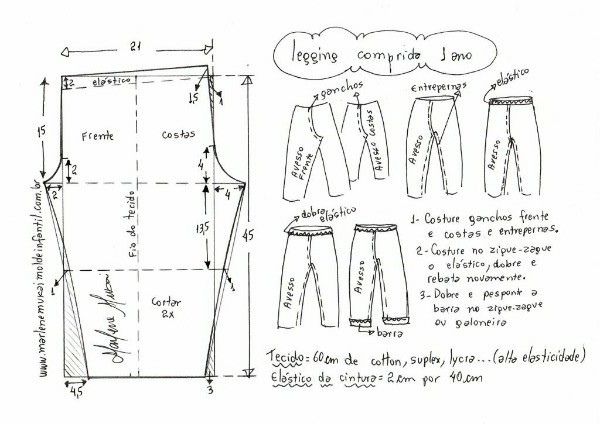 21
legging comprida 1 ano
2
elástico
1,5
1
15
Frente
costas
2
4
2
4
Fio do tecido
13,5
45
1
1
Cortar
2x
Marlene Mukai
4,5
3
www.marlenemukai.moldeinfantil.com.br
ganchos
Avesso
Frente
Avesso costas
Entrepernas
Avesso
elástico
Avesso
dobra elástico
Avesso
Avesso
barra
1- Costure ganchos frente
e costas e entrepernas.
2- Costure no zigue-zague
o elástico, dobre e
rebata novamente.
3- Dobre e pesponte a
barra no zigue-zague
ou galoneira
Tecido = 60cm de cotton, suplex, lycra... (alta elasticidade)
Elástico da cintura = 2cm por 40cm